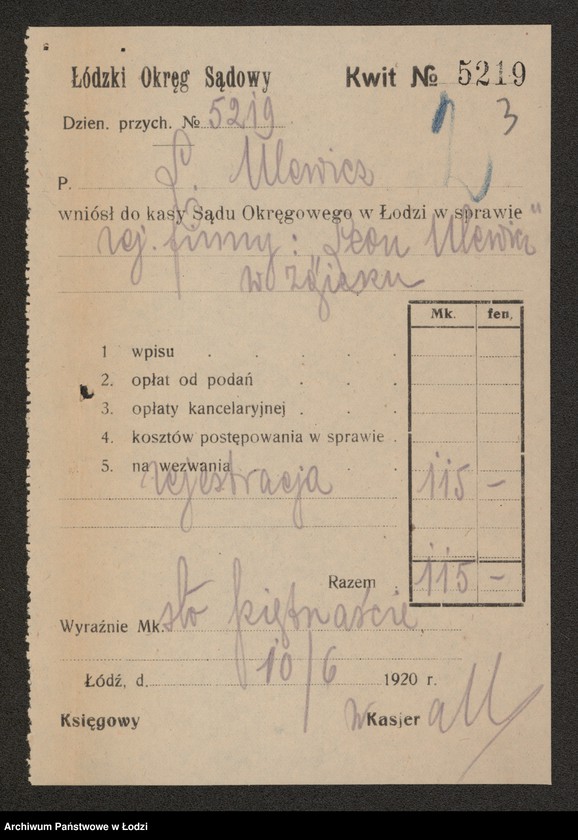 Łódzki Okręg Sądowy Kwit № 5219
Dzien. przych. № 5219
3
P. Ulewicz
wniósł do kasy Sądu Okręgowego w Łodzi w sprawie
rej. firmy: "Leon Ulewicz"
w Zgierzu
Mk. fen.
1 wpisu . . . . .
2. opłat od podań . . .
3. opłaty kancelaryjnej . . .
4. kosztów postępowania w sprawie .
5. na wezwania . .
rejestracja 115 -
Razem . 115 -
Wyraźnie Mk. sto piętnaście
Łódź, d. 10/6 1920 r.
Księgowy Kasjer
Archiwum Państwowe w Łodzi